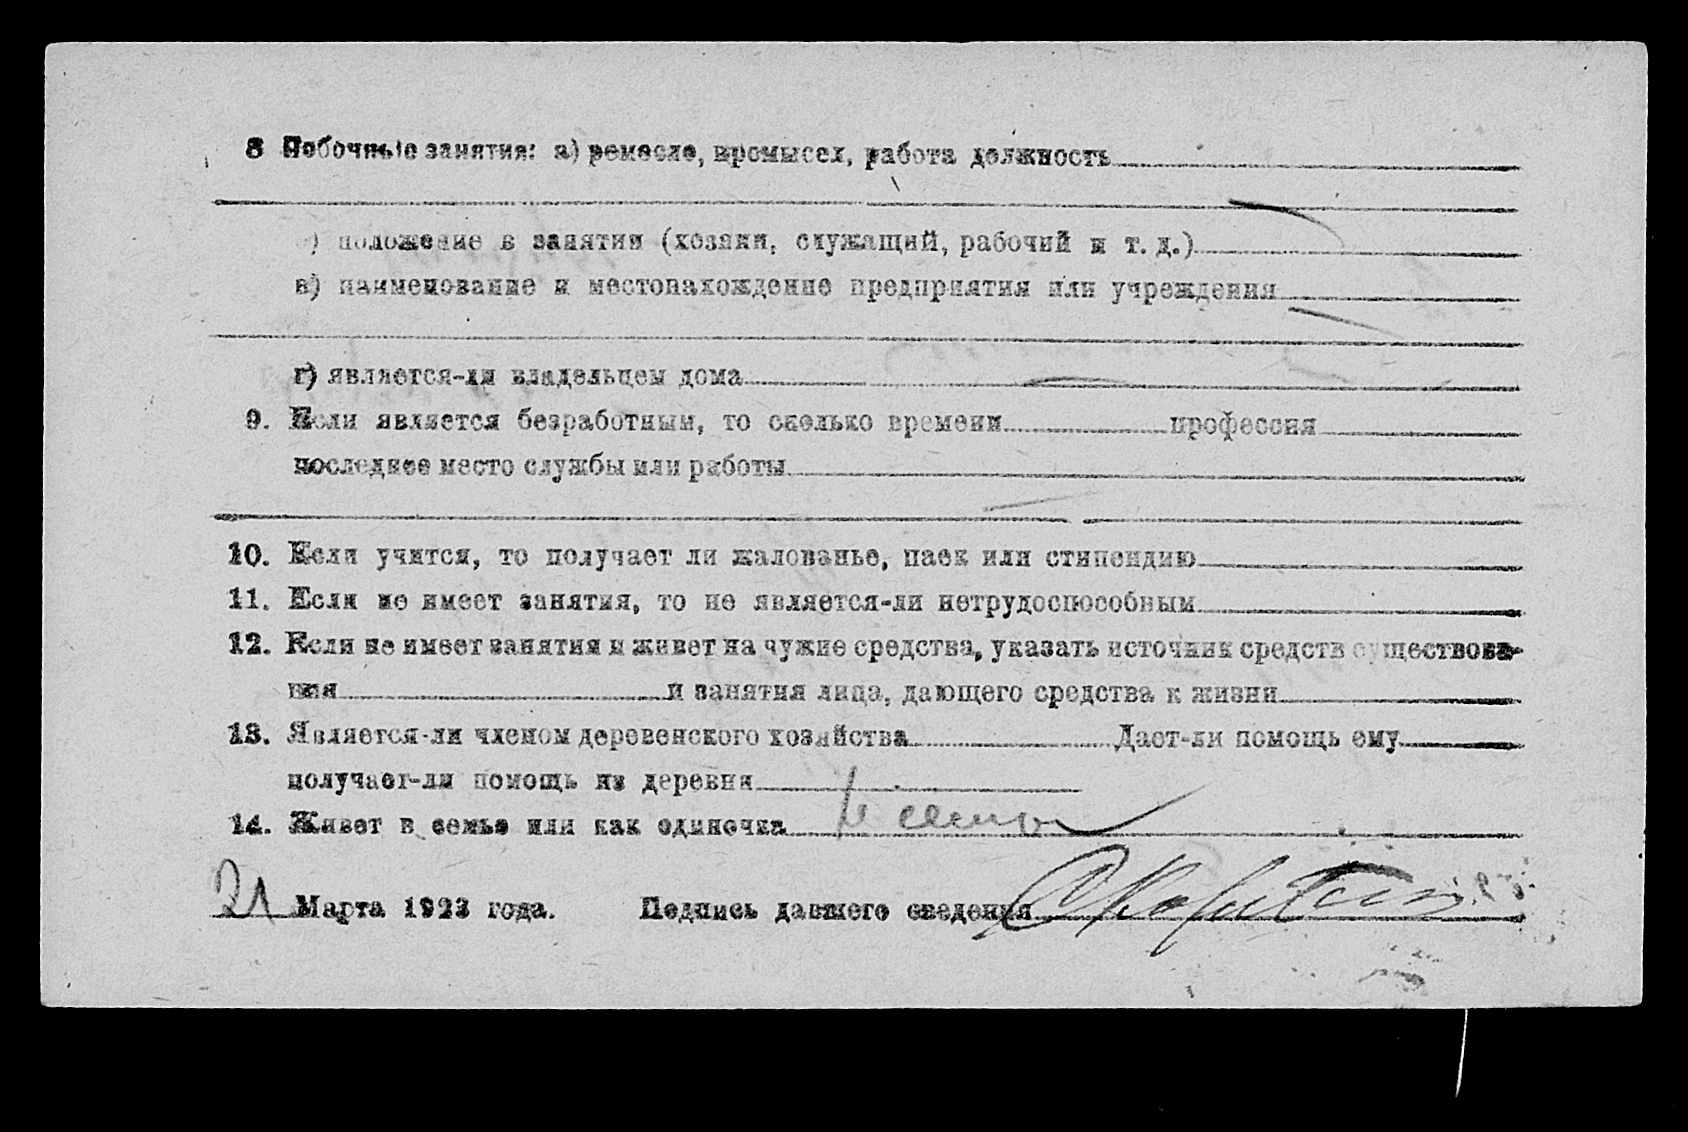 8 Побочные занятия: а) ремесло, промысел, работа должность
б) положение в занятии (хозяин, служащий, рабочий и т. д.)
в) наименование и местонахождение предприятия или учреждения
г) является-ли владельцем дома
9. Если является безработным, то сколько времени профессия
последнее место службы или работы
10. Если учится, то получает ли жалованье, паек или стипендию
11. Если не имеет занятия, то не является-ли нетрудоспособным
12. Если не имеет занятия и живет на чужие средства, указать источник средств существова-
ния и занятия лица, дающего средства к жизни
13. Является-ли членом деревенского хозяйства Дает-ли помощь ему
получает-ли помощь из деревни
14. Живет в семье или как одиночка
21 Марта 1923 года. Подпись давшего сведения